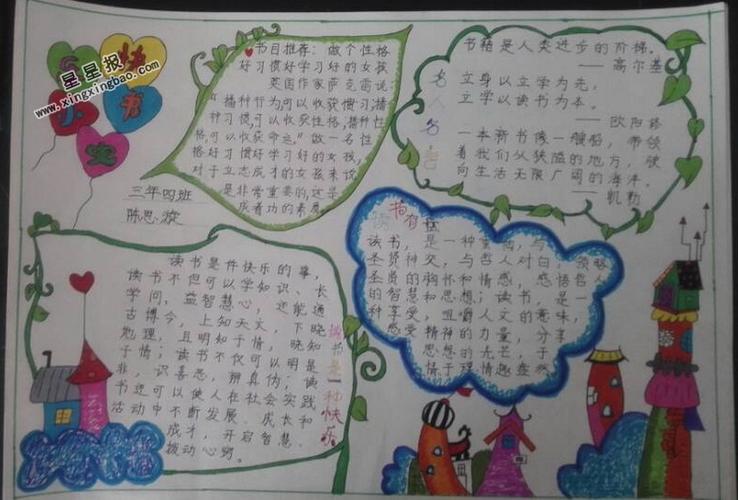 星星报
www.xingxingbao.com
快
书
三年四班
陈思漩
书目推荐：做个性格
好习惯好学习好的女孩
英国作家萨克雷说
“播种行为，可以收获习惯，播
种习惯可以收获性格，播种性
格，可以收获命运。”做一名性
格好习惯好学习好的女孩，
对于立志成才的女孩来说
是非常重要的，这是
成者功的素质
名人名言
书籍是人类进步的阶梯。
——高尔基
立身以立学为先，
立学以读书为本。
——欧阳修
一本新书像一艘船，带领
着我们从狭隘的地方，驶
向生活无限广阔的海洋。
——凯勒
读书是一种快乐
读书是件快乐的事，
读书不但可以学知识、长
学问，益智慧心，还能通
古博今，上知天文，下晓
地理；且明知于情，晓知
于情；读书不仅可以明是
非，识善恶，辨真伪；读
书还可以使人在社会实践
活动中不断发展、成长和
成才，开启智慧、
拨动心窍。
读书有
读书，是一种
圣贤神交，与哲人对白，领略
圣贤的胸怀和情感，感悟哲人
的智慧和思想；读书，是一
种享受，咀嚼人文的意味，
感受精神的力量，分享
思想的光芒，于
情于理情趣盎然